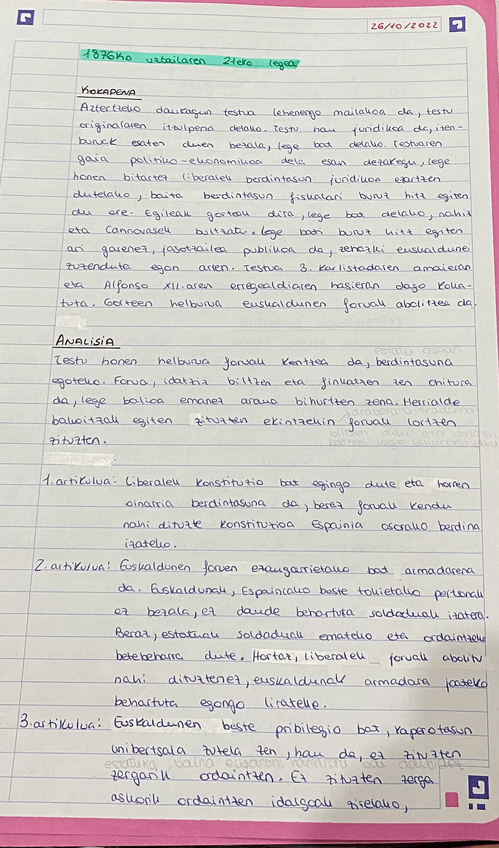 26/10/2022
1876ko uztailaren 21eko legea
KOKAPENA
Aztertzeko daukagun testua lehenengo mailakoa da, testu
originalaren itzulpena delako. Testu hau juridikoa da, izen-
buruak esaten duen bezala, lege bat delako. Testuaren
gaia politiko-ekonomikoa dela esan dezakegu, lege
honen bitartez liberalek berdintasun juridikoa ezartzen
dutelako, baita berdintasun fiskalari buruz hitz egiten
du ere. Egileak gorteak dira, lege bat delako, nahiz
eta Cannovasek bultzatu. Lege bati buruz hitz egiten
ari garenez, jasotzailea publikoa da, zehazki euskaldunei
zuzenduta egon arren. Testua 3. Karlistadaren amaieran
eta Alfonso XII.aren erregealdiaren hasieran dago koka-
tuta. Gorteen helburua euskaldunen foruak abolitzea da.
ANALISIA
Testu honen helburua foruak kentzea da, berdintasuna
egoteko. Forua, idatziz biltzen eta finkatzen zen ohitura
da, lege balioa emanez arau bihurtzen zena. Herrialde
bakoitzak egiten zituzten ekintzekin foruak lortzen
zituzten.
1. artikulua: Liberalek konstituzio bat egingo dute eta horren
oinarria berdintasuna da, beraz foruak kendu
nahi dituzte konstituzioa Espainia osorako berdina
izateko.
2. artikulua: Euskaldunen foruen ezaugarrietako bat armadarena
da. Euskaldunak, Espainiako beste tokietako pertsonak
ez bezala, ez daude behartuta soldaduak izatera.
Beraz, estatuak soldaduak emateko eta ordaintzeko
betebeharra dute. Hortaz, liberalek foruak abolitu
nahi dituztenez, euskaldunak armadara joateko
behartuta egongo lirateke.
3. artikulua: Euskaldunen beste pribilegio bat, kaparetasun
unibertsala zutela zen, hau da, ez zituzten
zergarik ordaintzen. Ez zituzten zerga
askorik ordaintzen idalgoak zirelako,